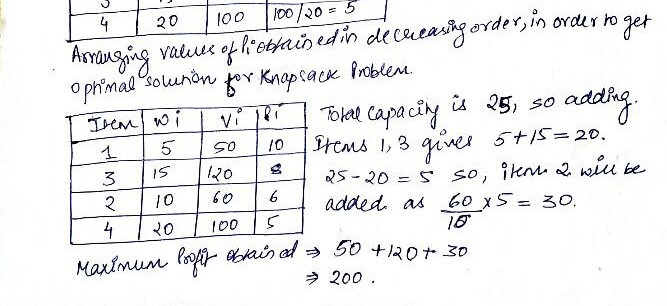 4 20 100 100/20 = 5
Arranging values of Pi obtained in decreasing order, in order to get
optimal solution for Knapsack Problem.
Item wi vi Pi
1 5 50 10
3 15 120 8
2 10 60 6
4 20 100 5
Total Capacity is 25, so adding.
Items 1, 3 gives 5+15=20.
25-20 = 5 so, item 2 will be
added as 60/10 x5 = 30.
Maximum Profit obtained ⇒ 50 +120+ 30
⇒ 200.